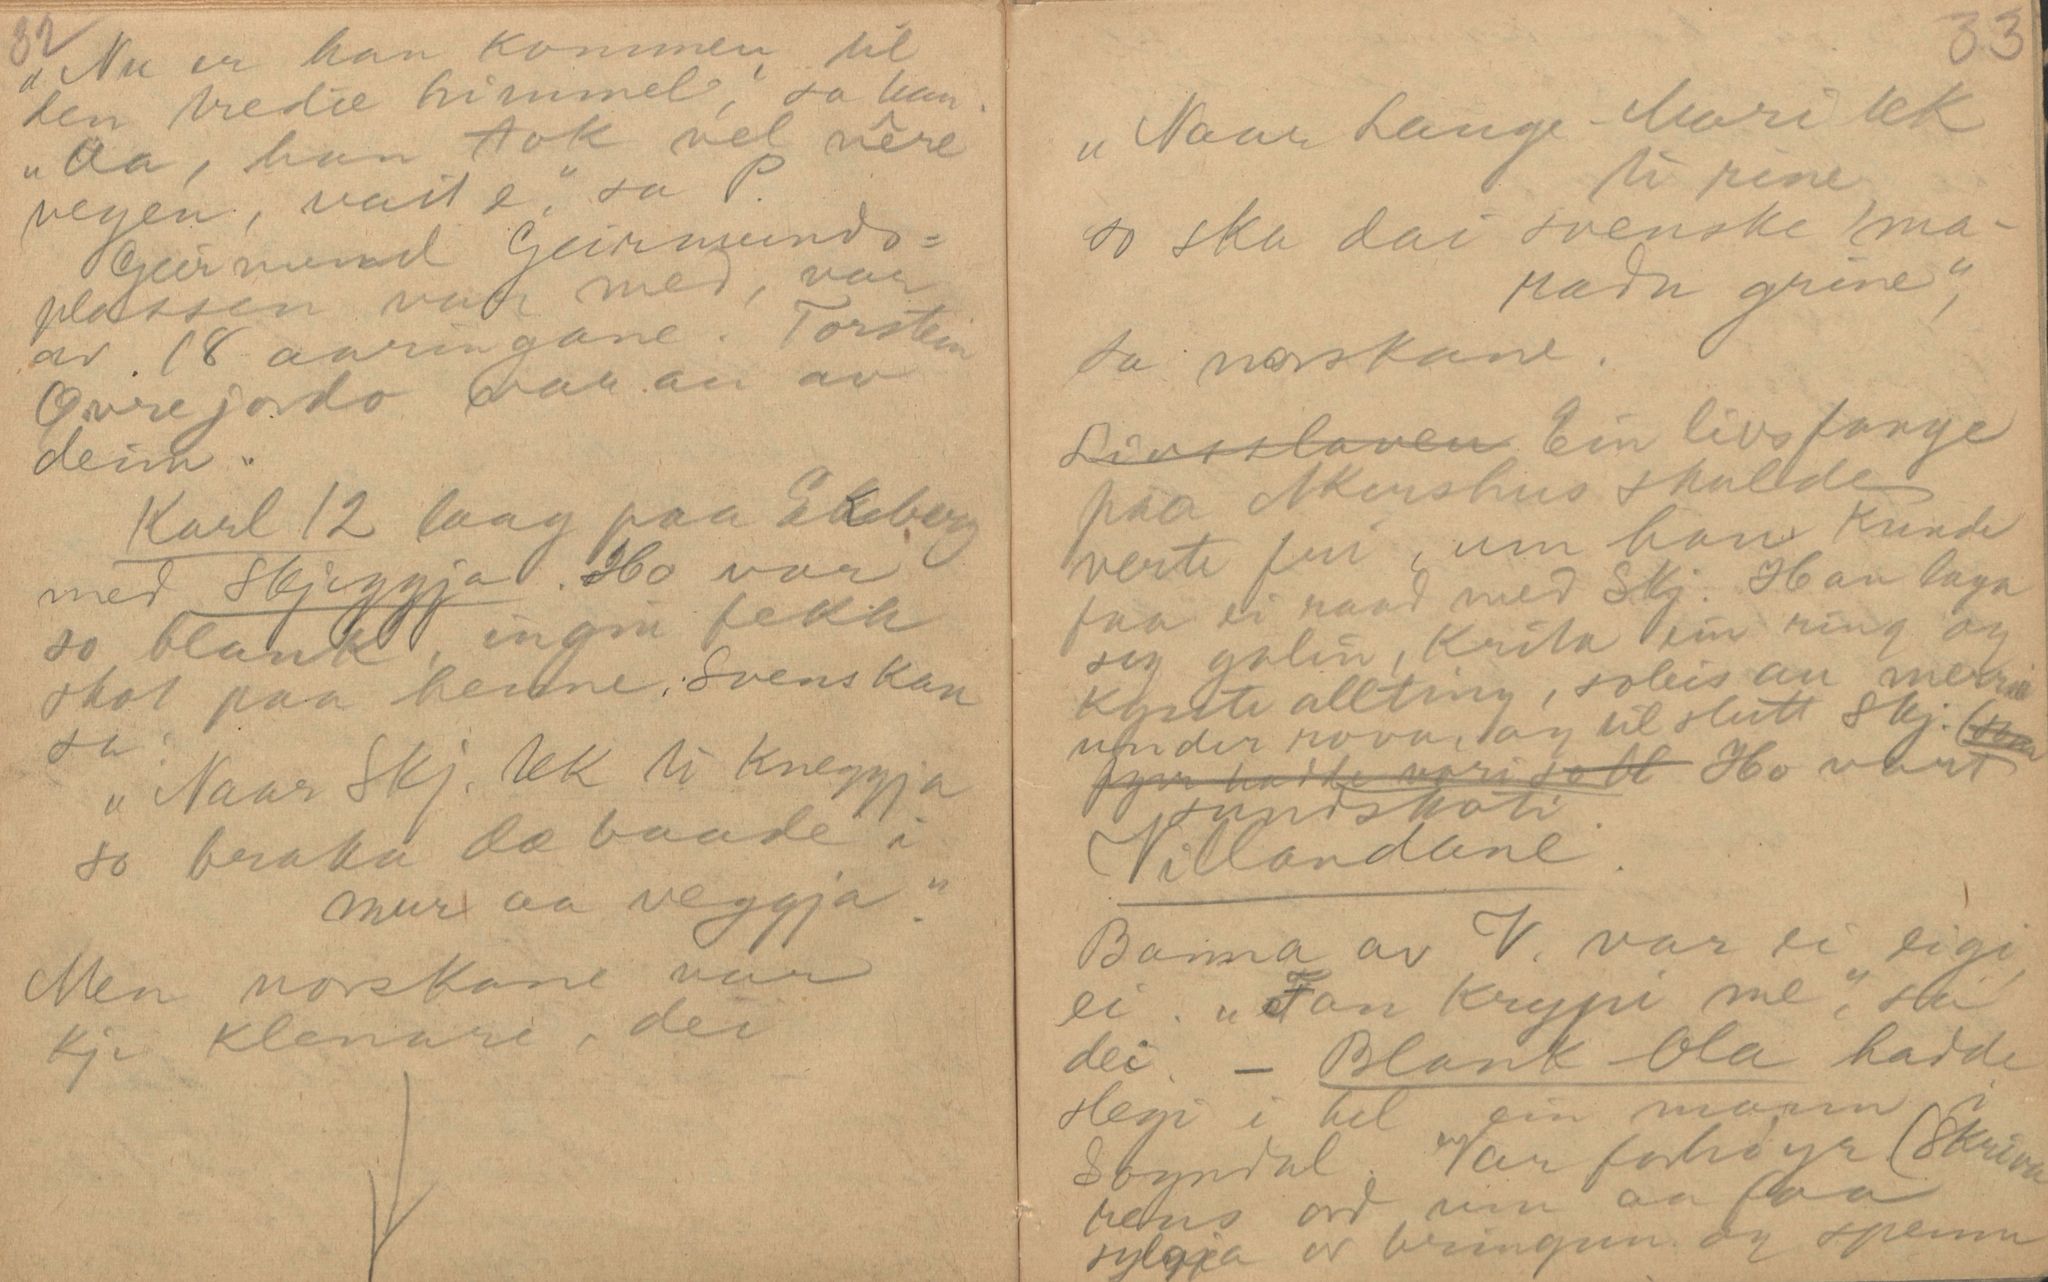 32
"Nu er han kommen til
den tredie himmel", sa han.
"Aa, han tok vel vêre
vegen, vait e," sa P.
Geirmund Geirmunds=
plassen var med, var
av 18 aaringane. Torstein
Øvrejordo var an av
deim.
Karl 12 laag paa Ekeberg
med Skjeggja. Ho var
so blank, ingin fekk
skot paa henne. Svenskan
sa:
"Naar Skj. tek ti kneggja
so braka dæ baade i
mur aa veggja."
Men norskane var
kje klenare, dei
33
"Naar Lange-Mari tek
ti rine
so ska dai svenske ma-
radn grine",
sa norskane.
Livsslaven Ein livsfange
paa Akershus skulde
verte fri, um han kunde
faa ei raad med Skj. Han laga
seg galin, krita ein ring og
kyste allting, soleis au merri
under rova, og til slutt Skj. (som
fyrr hadde vori sett Ho vart
sundskoti.
Villandane.
Banna av V. var ei eigi
ei. "Fan krypi me", sa
dei. — Blank-Ola hadde
slegi i hel ein mann i
Sogndal. Var forhøyr (Skriva
rens ord um aa faa
sylgja or bringun og spenn